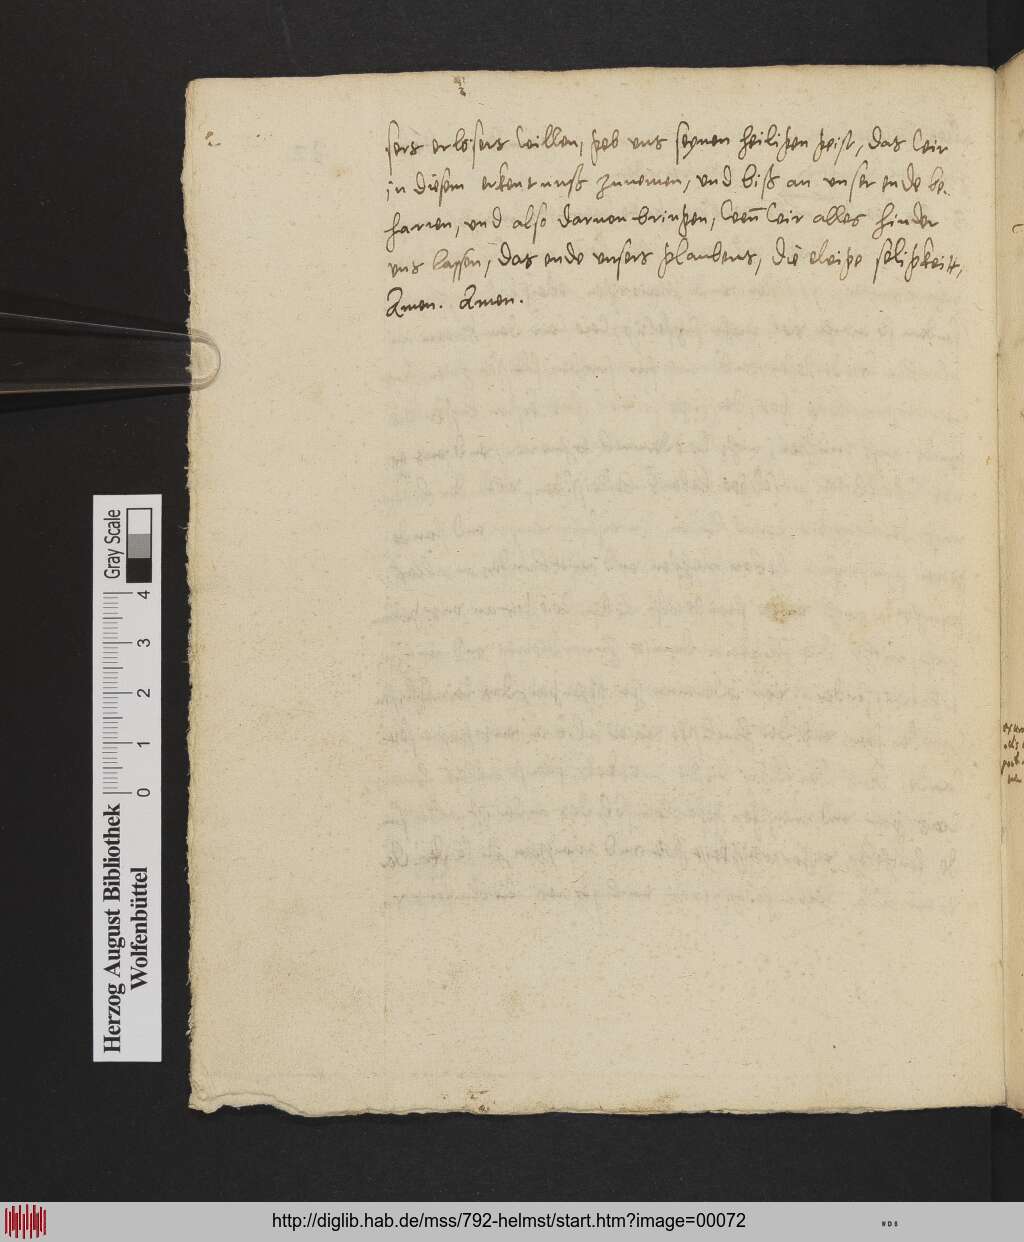 sers erlösers willen, geb uns seynen heiligen geist, das wir
in diesem erkentnuß zunemen, und biß an unser ende be-
harren, und also daruon bringen, wen̄ wir alles hinder
uns lassen, das ende unsers glaubens, die ewige seligkeitt,
Amen. Amen.
Gray Scale
0 1 2 3 4
Herzog August Bibliothek
Wolfenbüttel
http://diglib.hab.de/mss/792-helmst/start.htm?image=00072